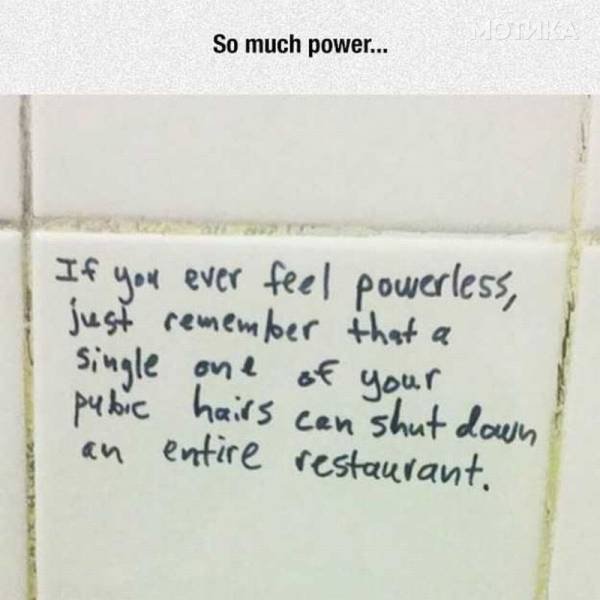 So much power...
МОТИКА
If you ever feel powerless,
just remember that a
single one of your
pubic hairs can shut down
an entire restaurant.